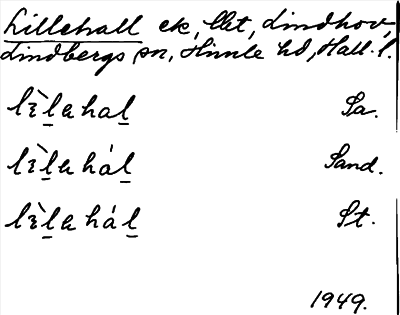 Lillehall ek, llt, Lindhov,
Lindbergs sn, Himle hd, Hall. l.
lìl̲ahal̲ Sa.
lìl̲ahál̲ Sand.
lìl̲ahál̲ St.
1949.